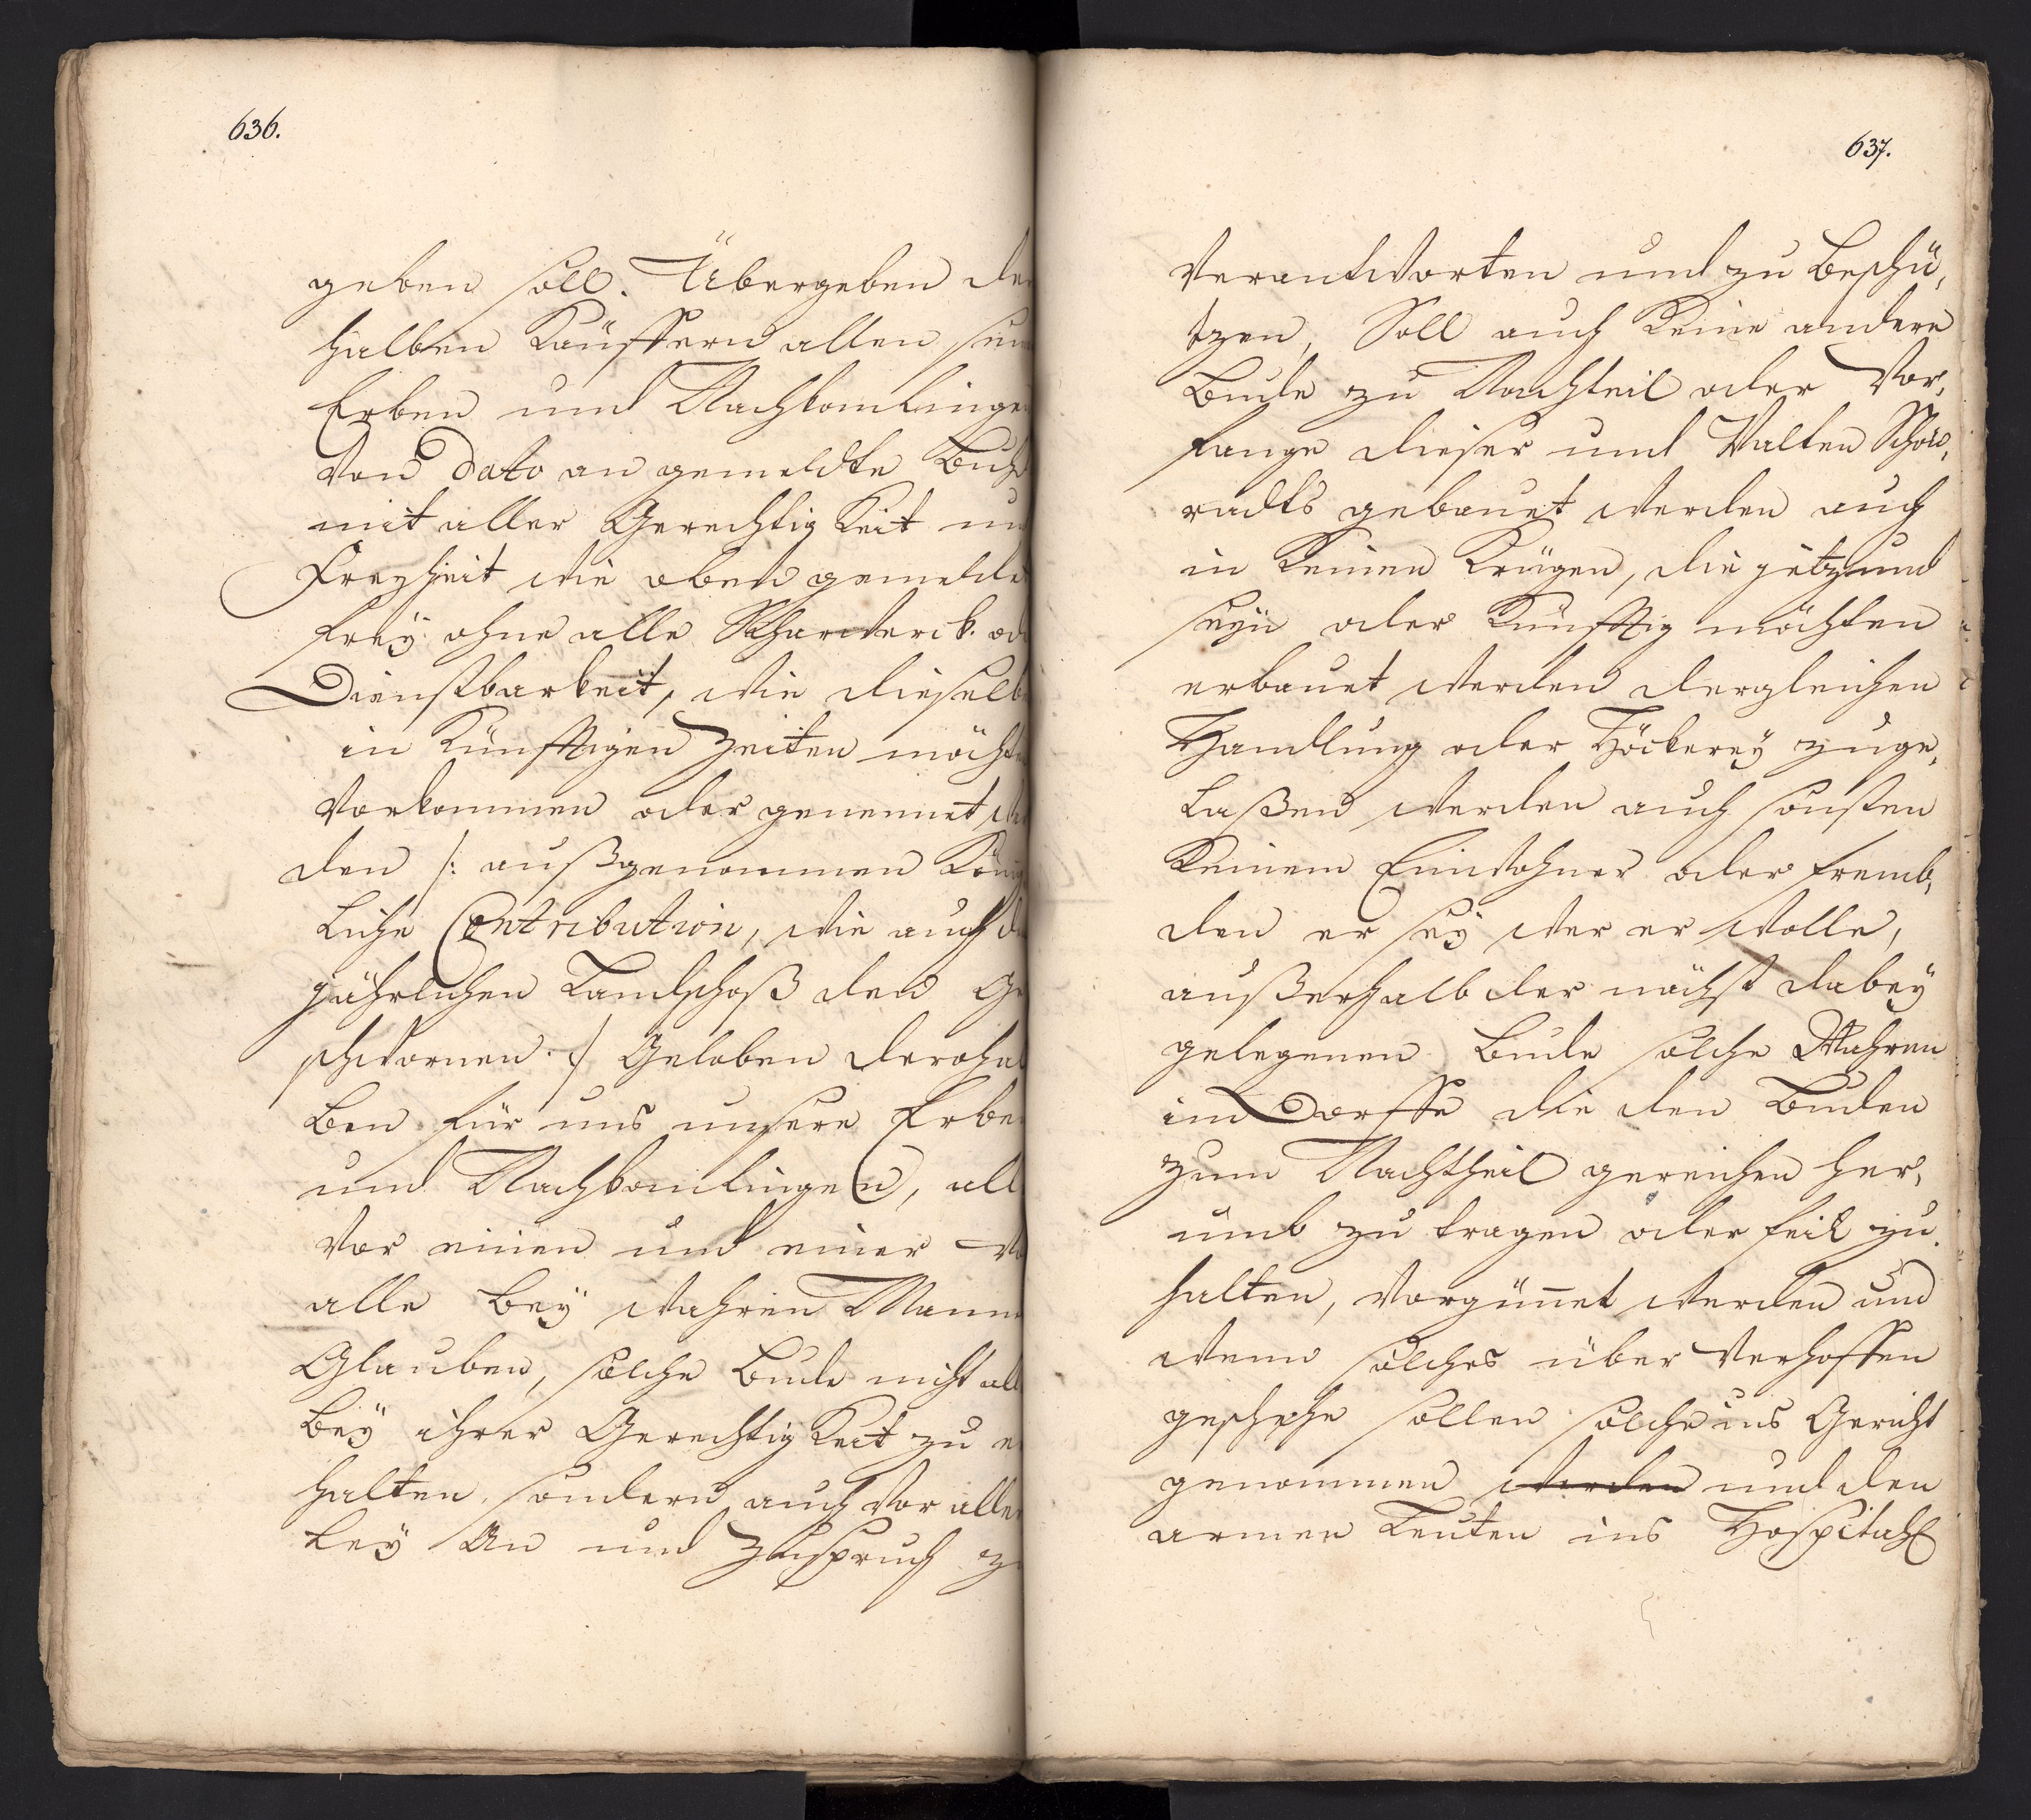 636.
geben soll. Übergeben der
halben Käuffern allen sein
Erben und Nachkomlingen
Von Dato an gemeldte Bude
mit aller Gerechtigkeit un
Freyheit wie oben gemeldet
frey ohne alle Scharwerck. od
Dienstbarkeit, wie dieselbe
in Künfftigen Zeiten möchte
Vorkommen oder genennet we
den /: außgenommen König
liche Contribution, wie auch de
jährlichen Landschoß den Ge
schwornen. :/ Geloben derohal
ben für uns unsere Erben
und Nachkomlingen, alle
Vor einen und einer Vo
alle bey wahren Mann
Glauben, solche Bude nicht all
bey ihrer Gerechtigkeit zu er
halten, sondern auch Vor aller
ley An und Zuspruch zu
637.
Verantworten und zu beschü,
tzen, Soll auch keine andere
Bude zu Nachteil oder Vor,
fange dieser und Valten
radts gebauet werden auch
in keinen Krügen, die jetzund
seyn oder Künfftig möchten
erbauet werden dergleichen
Handlung oder Höckerey zuge,
laßen werden auch sonsten
keinem Einwohner oder fremb,
den er sey wer er wolle,
außerhalb der nächst dabey
gelegenen Bude solche Wahren
im Dorffe die den Buden
zum Nachtheil gereichen her,
umb zu tragen oder feil zu
halten, Vorgünnet werden und
wenn solches über Verhoffen
geschehe sollen solche ins Gericht
genommen werden und den
armen Leuten ins Hospital